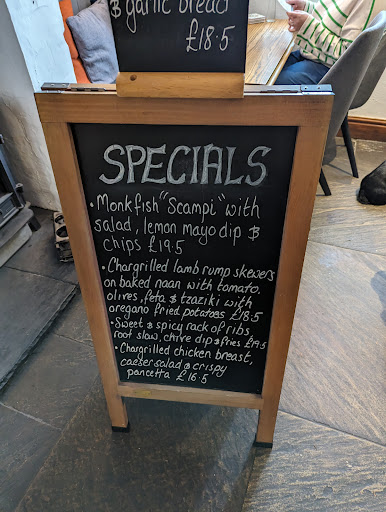 & garlic bread
£18.5
SPECIALS
• Monkfish "Scampi" with
salad, lemon mayo dip &
chips £19.5
• Chargrilled lamb rump skewers
on baked naan with tomato,
olives, feta & tzaziki with
oregano fried potatoes £18.5
• Sweet & spicy rack of ribs,
root slaw, chive dip & fries £19.5
• Chargrilled chicken breast,
caeser salad & crispy
pancetta £16.5